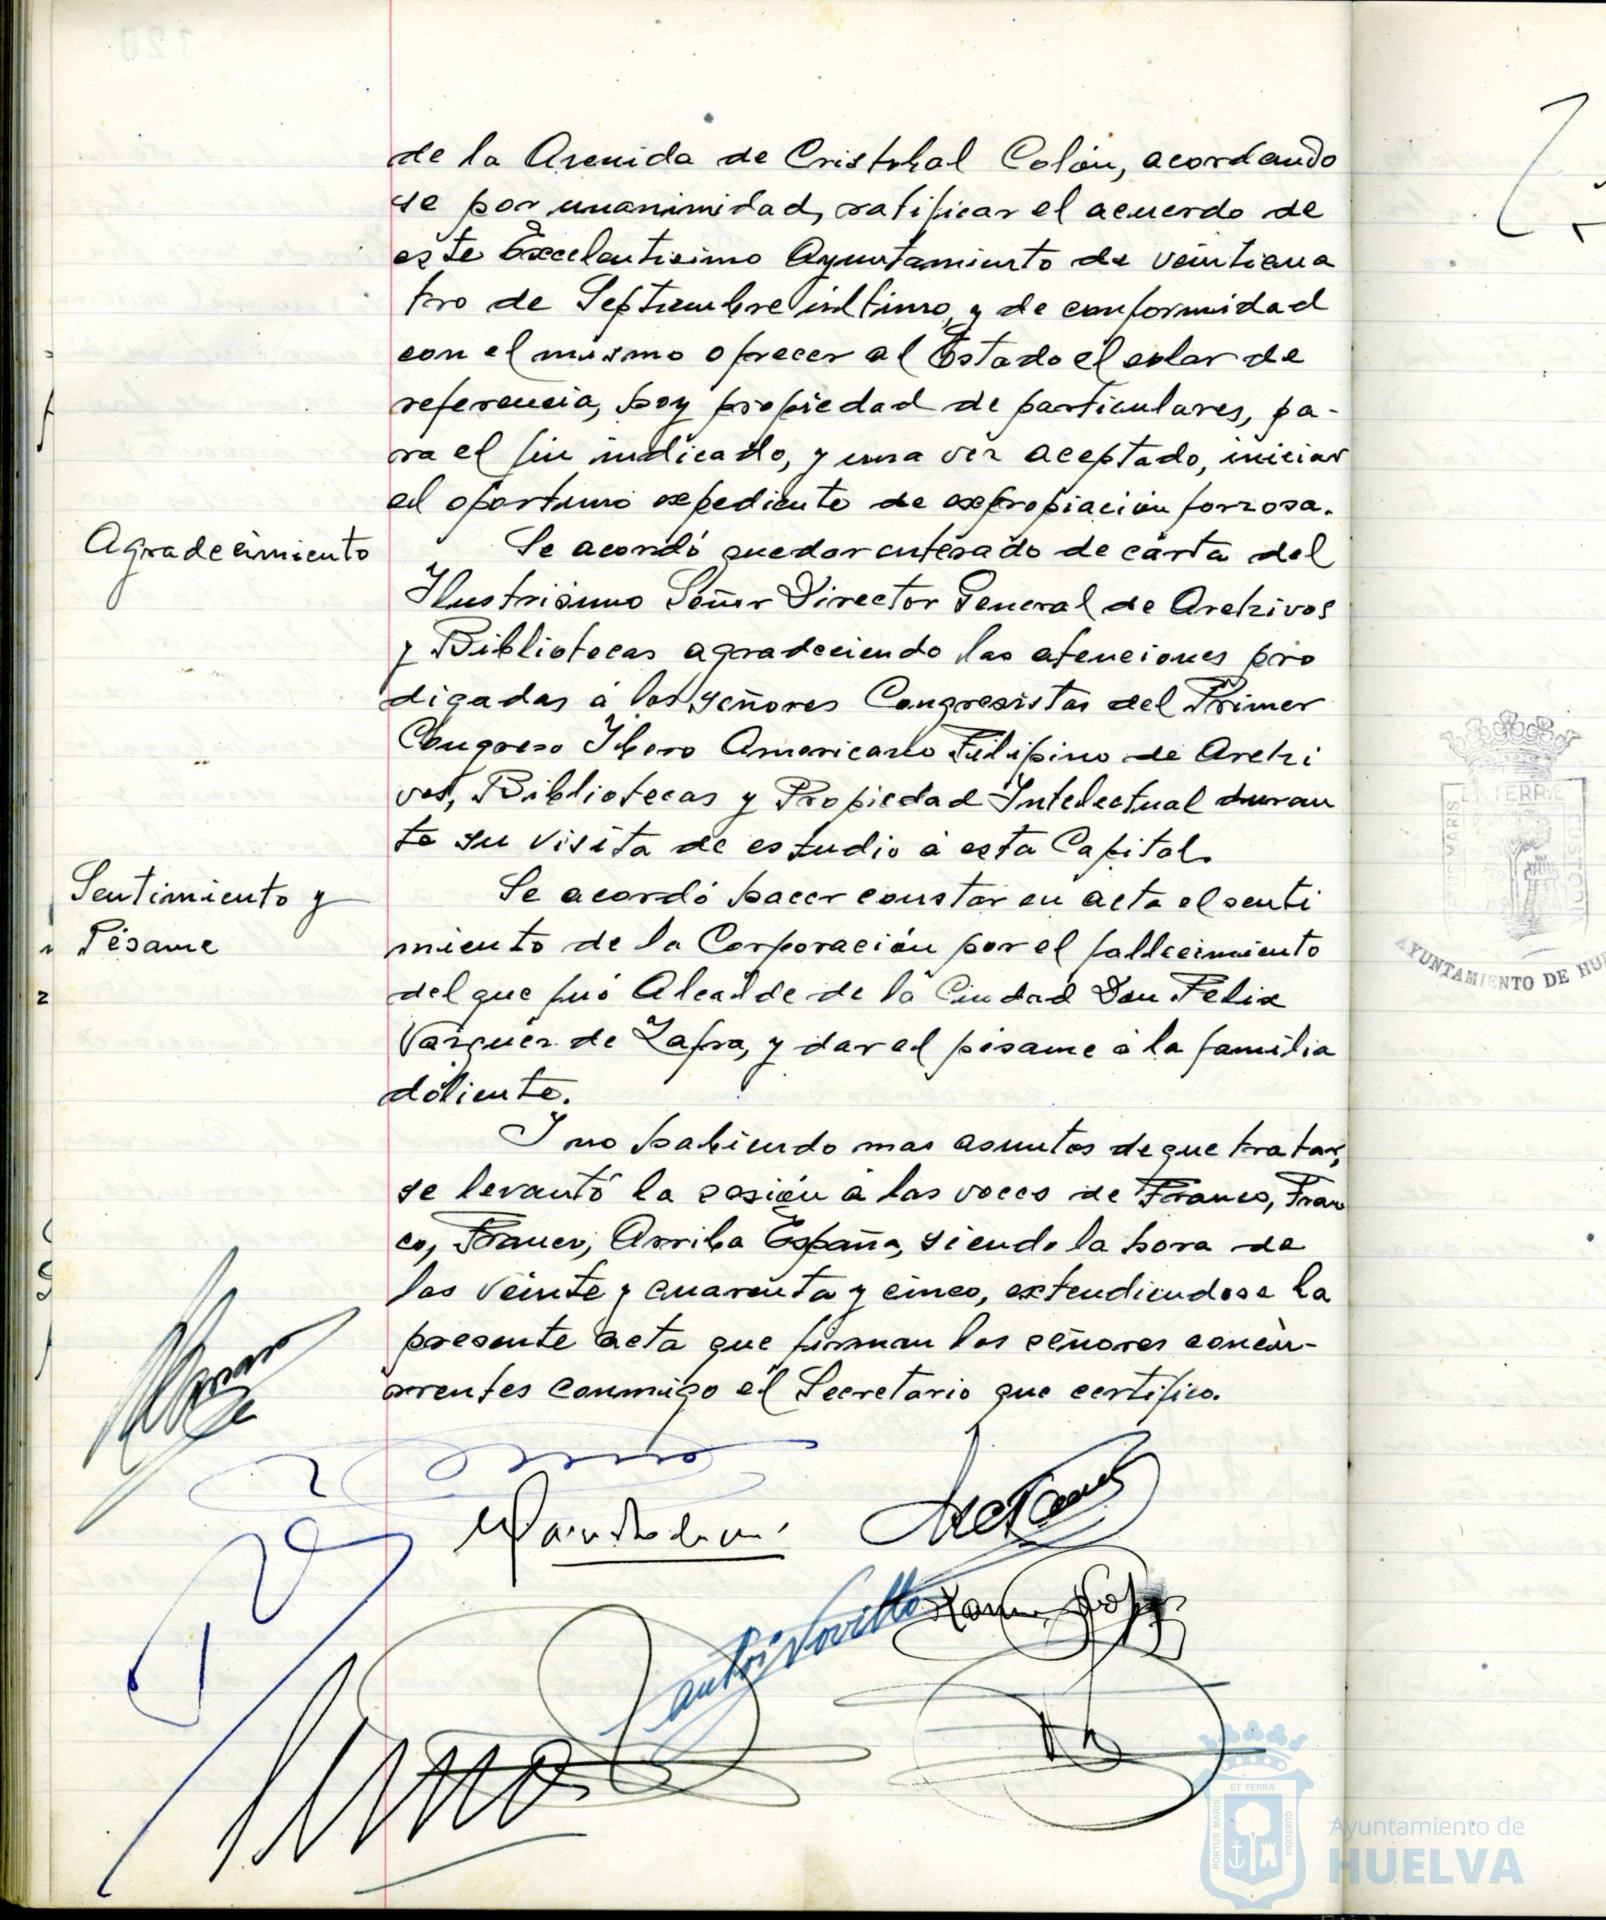 de la Avenida de Cristobal Colón, acordando
se por unanimidad, ratificar el acuerdo de
este Excelentisimo Ayuntamiento de veinticua
tro de Septiembre último, y de conformidad
con el mismo ofrecer al Estado el solar de
referencia, hoy propiedad de particulares, pa-
ra el fin indicado, y una vez aceptado, iniciar
el oportuno expediente de expropiación forzosa.
Agradecimiento
Se acordó quedar enterado de carta del
Ilustrisimo Señor Director General de Archivos
y Bibliotecas agradeciendo las atenciones pro
digadas á los señores Congresistas del Primer
Congreso Ibero Americano Filipino de Archi
vos, Bibliotecas y Propiedad Intelectual duran
te su visita de estudio á esta Capital.
Sentimiento y
Pésame
Se acordó hacer constar en acta el senti
miento de la Corporación por el fallecimiento
del que fué Alcalde de la Ciudad Don Felix
Vazquez de Zafra, y dar el pésame á la familia
doliente.
Y no habiendo mas asuntos de que tratar,
se levantó la sesión á las voces de Franco, Fran
co, Franco, Arriba España, siendo la hora de
las veinte y cuarenta y cinco, extendiendose la
presente acta que firman los señores concu-
rrentes conmigo el Secretario que certifico.
ET TERRÆ
AYUNTAMIENTO DE HU
ET TERRÆ
PORTUS MARIS
CUSTODIA
Ayuntamiento de
HUELVA